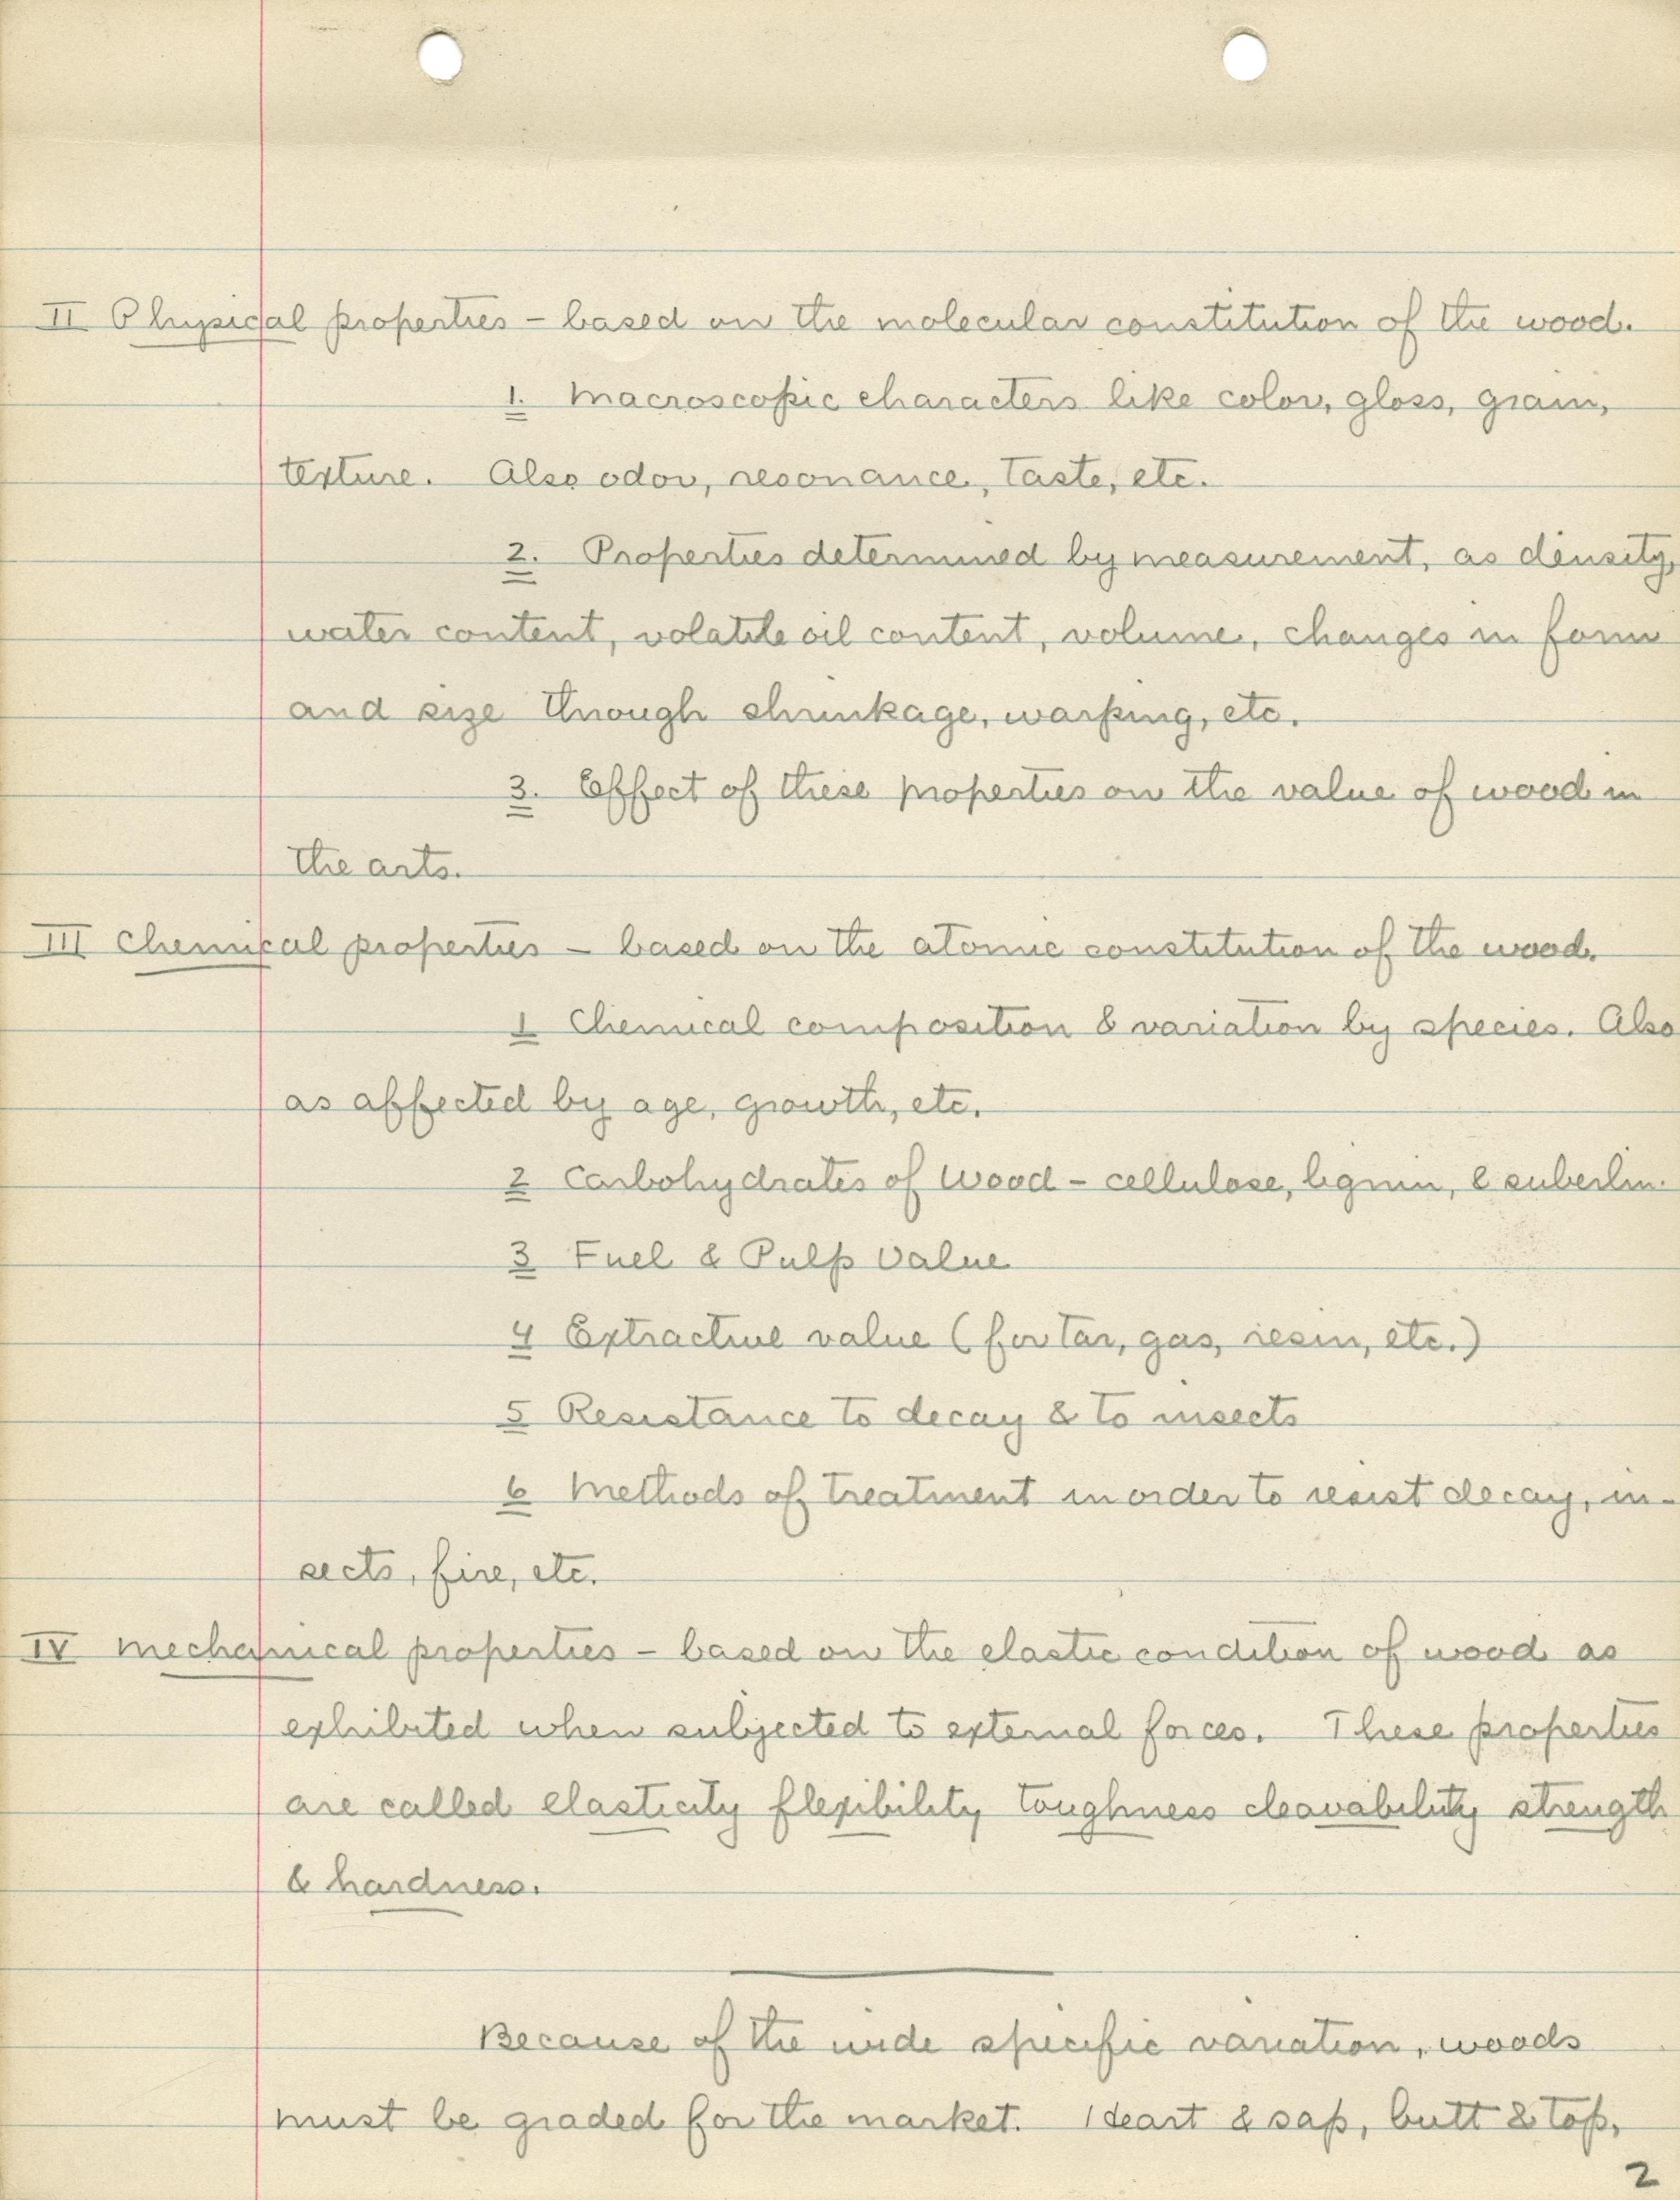 II Physical properties – based on the molecular constitution of the wood.
1. Macroscopic characters like color, gloss, grain,
texture. Also odor, resonance, taste, etc.
2. Properties determined by measurement, as density,
water content, volatile oil content, volume, changes in form
and size through shrinkage, warping, etc.
3. Effect of these properties on the value of wood in
the arts.
III Chemical properties – based on the atomic constitution of the wood.
1 Chemical composition & variation by species. Also
as affected by age, growth, etc.
2 Carbohydrates of wood – cellulose, lignin, & suberlin.
3 Fuel & Pulp Value
4 Extractive value (for tar, gas, resin, etc.)
5 Resistance to decay & to insects
6 Methods of treatment in order to resist decay, in-
sects, fire, etc.
IV Mechanical properties – based on the elastic condition of wood as
exhibited when subjected to external forces. These properties
are called elasticity flexibility toughness cleavability strength
& hardness.
Because of the wide specific variation, woods
must be graded for the market. Heart & sap, butt & top,
2